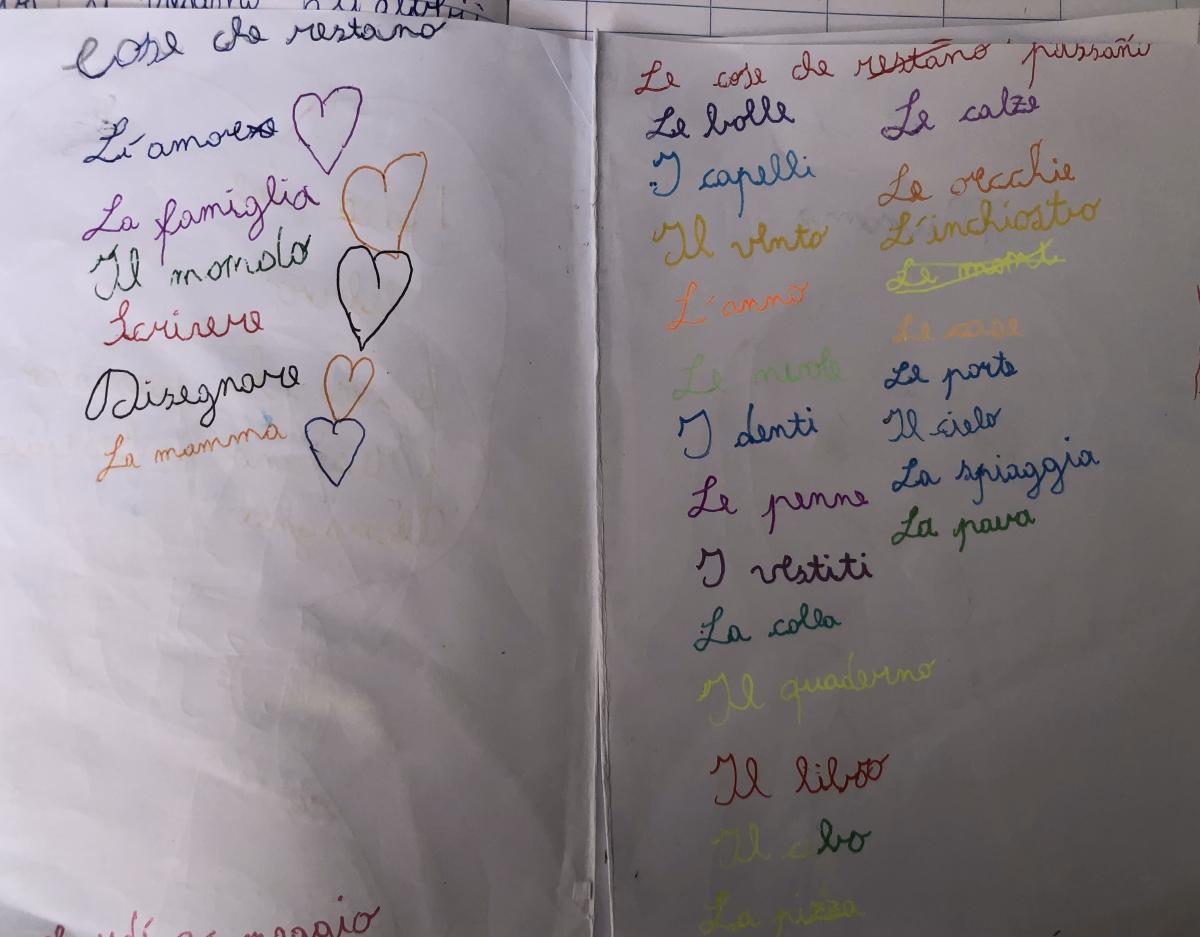 Cose che restano
L'amore
La famiglia
Il mondo
Scrivere
Disegnare
La mamma
maggio
Le cose che restano passano
Le bolle
I capelli
Il vento
L'anno
Le nuvole
I denti
Le penne
I vestiti
La colla
Il quaderno
Il libro
Il cibo
La pizza
Le calze
Le orcchie
L'inchiostro
Le case
Le porte
Il cielo
La spiaggia
La paura